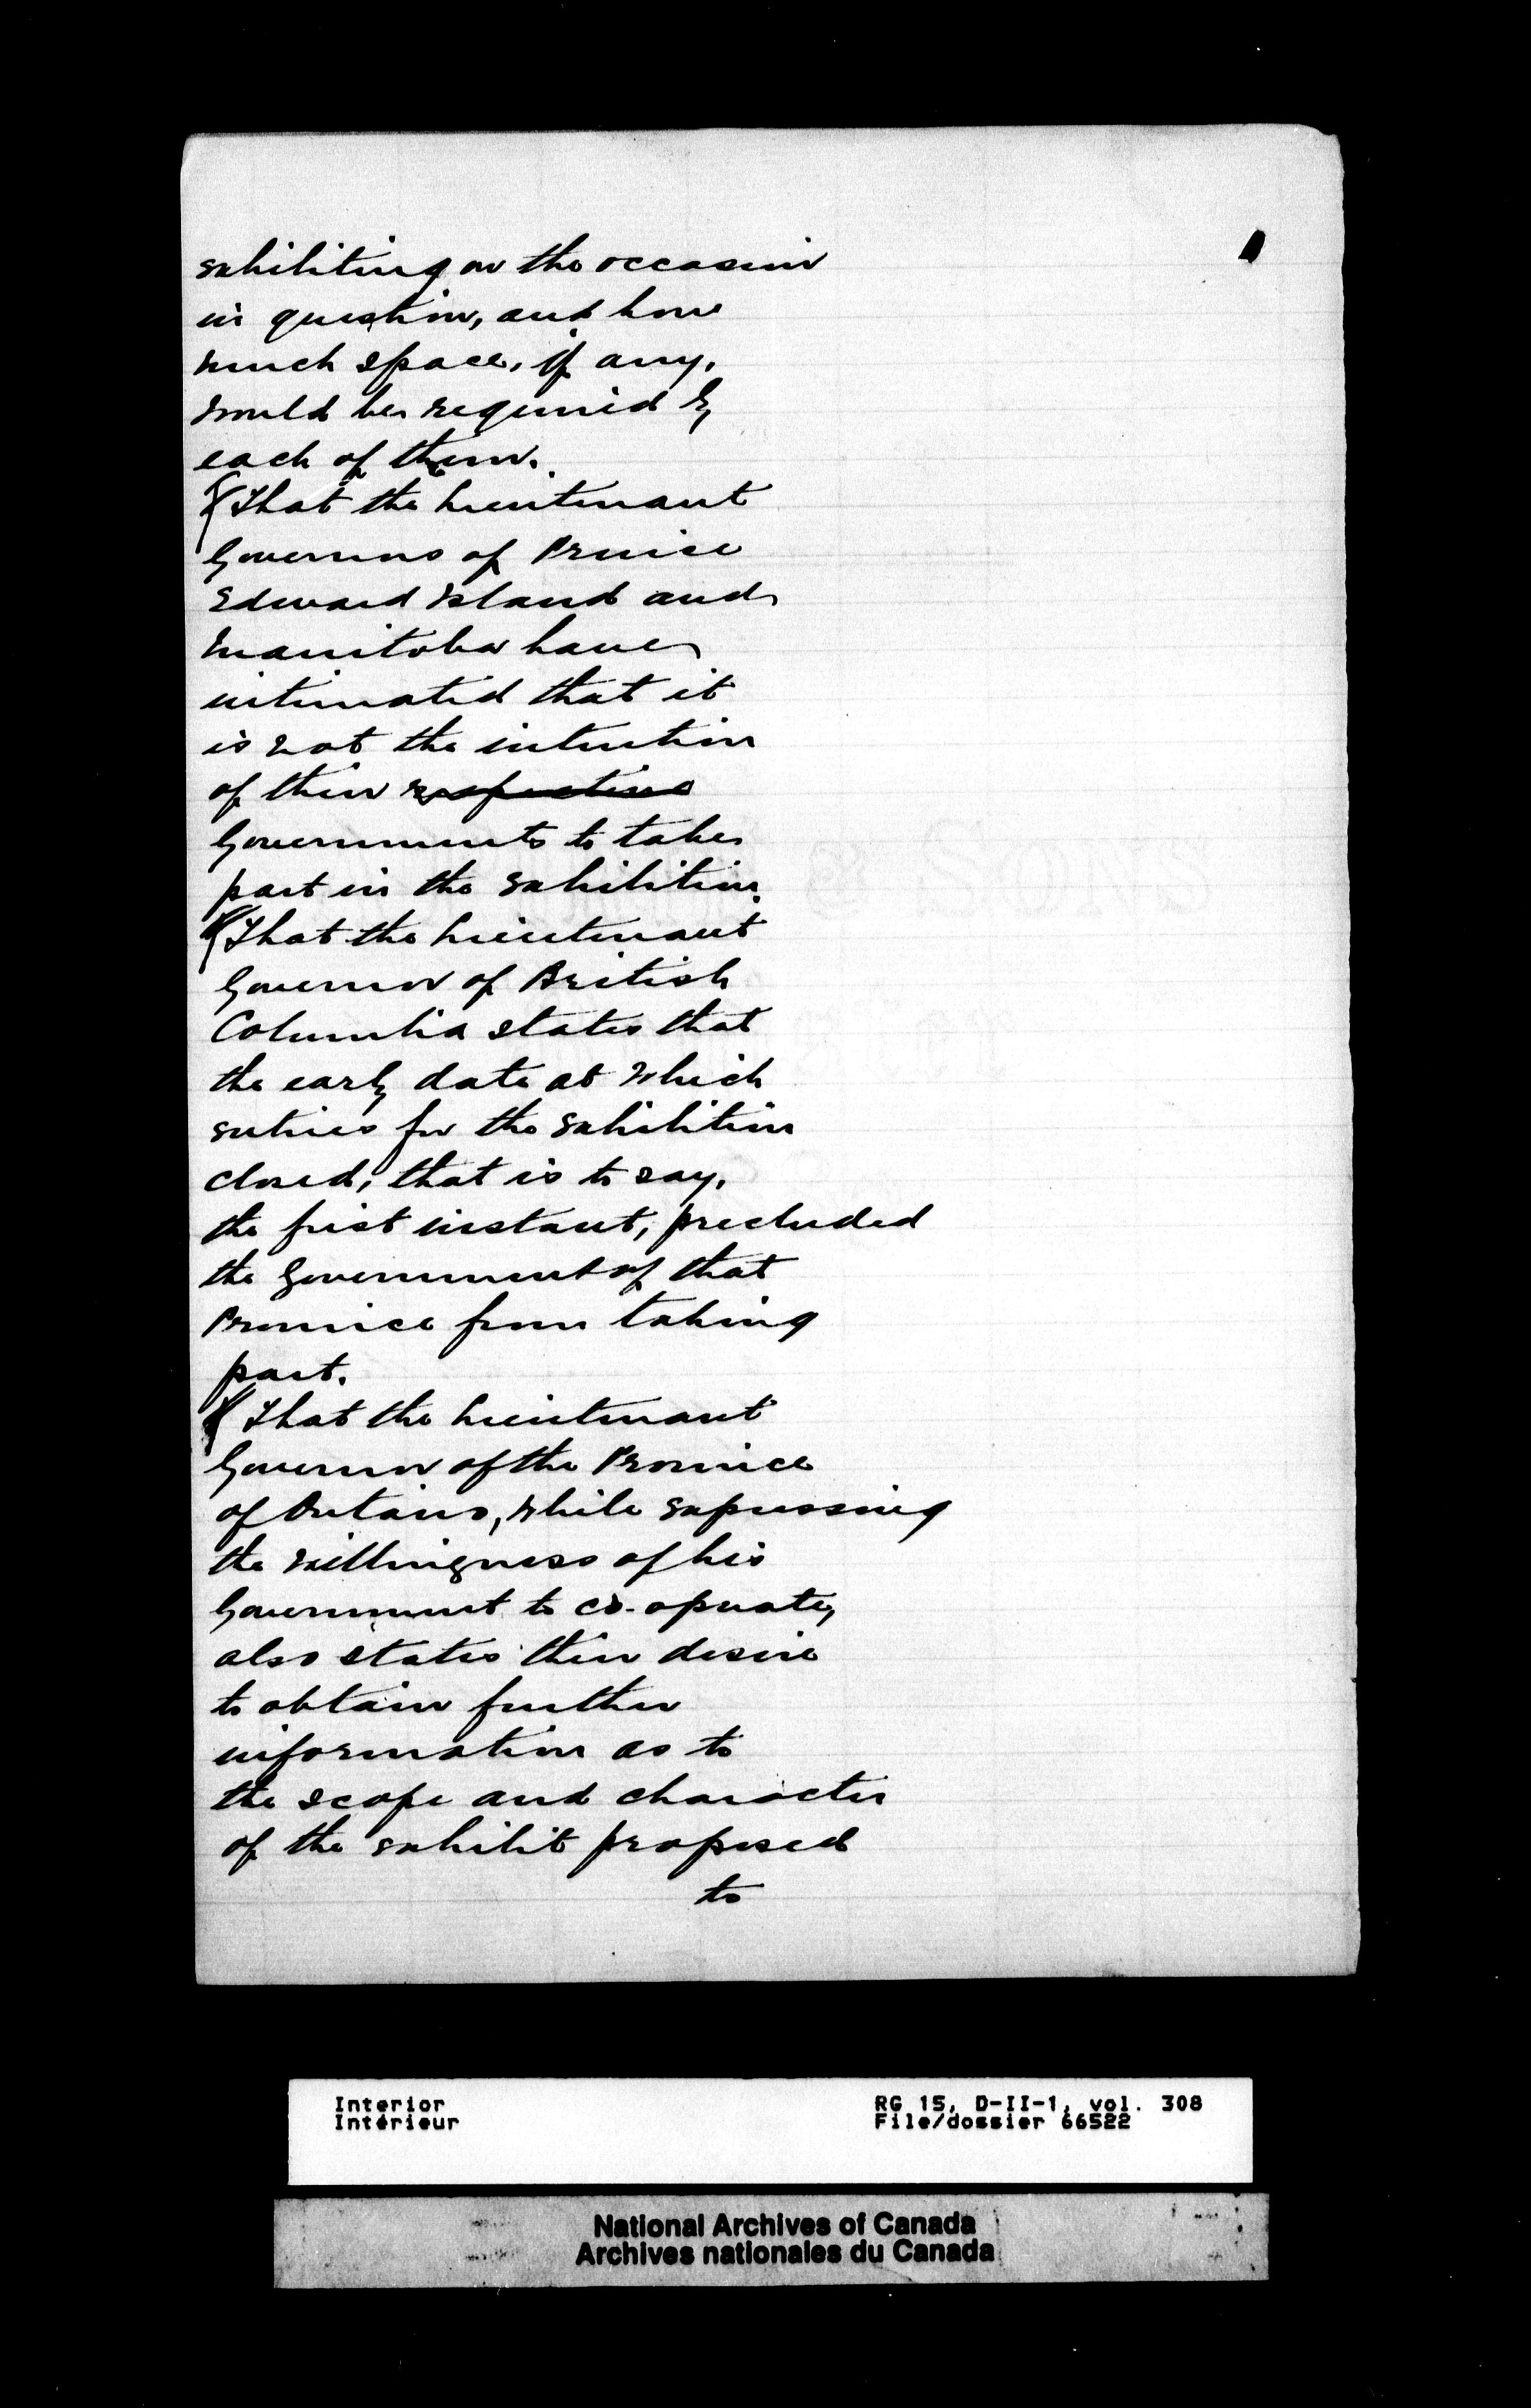 exhibiting on the occasion
in question, and how
much space, if any,
would be required by
each of them.
That the Lieutenant
Governors of Prince
Edward Island and
Manitoba have
intimated that it
is not the intention
of their respective
Governments to take
part in the Exhibition.
That the Lieutenant
Governor of British
Columbia states that
the early date at which
entries for the Exhibition
closed, that is to say,
the first instant, precluded
the Government of that
Province from taking
part.
That the Lieutenant
Governor of the Province
of Ontario, while expressing
the willingness of his
Government to co-operate,
also states their desire
to obtain further
information as to
the scope and character
of the exhibit proposed
to
Interior
Intérieur
RG 15, D-II-1, vol. 308
File/dossier 66522
National Archives of Canada
Archives nationales du Canada